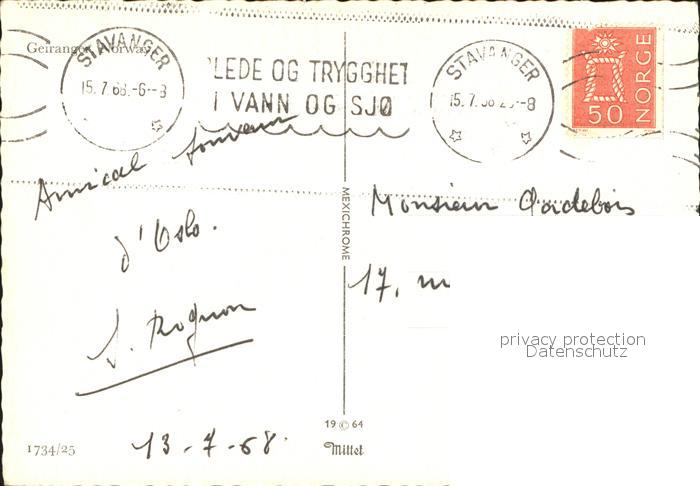 Geiranger, Norway
STAVANGER
15.7.68.-6--8
LEDE OG TRYGGHET
I VANN OG SJØ
STAVANGER
15.7.
-8
50 NORGE
Amical souvenir
d'Oslo.
Rognon
13-7-68.
Monsieur
17, m
MEXICHROME
privacy protection
Datenschutz
19 © 64
Mittet
1734/25